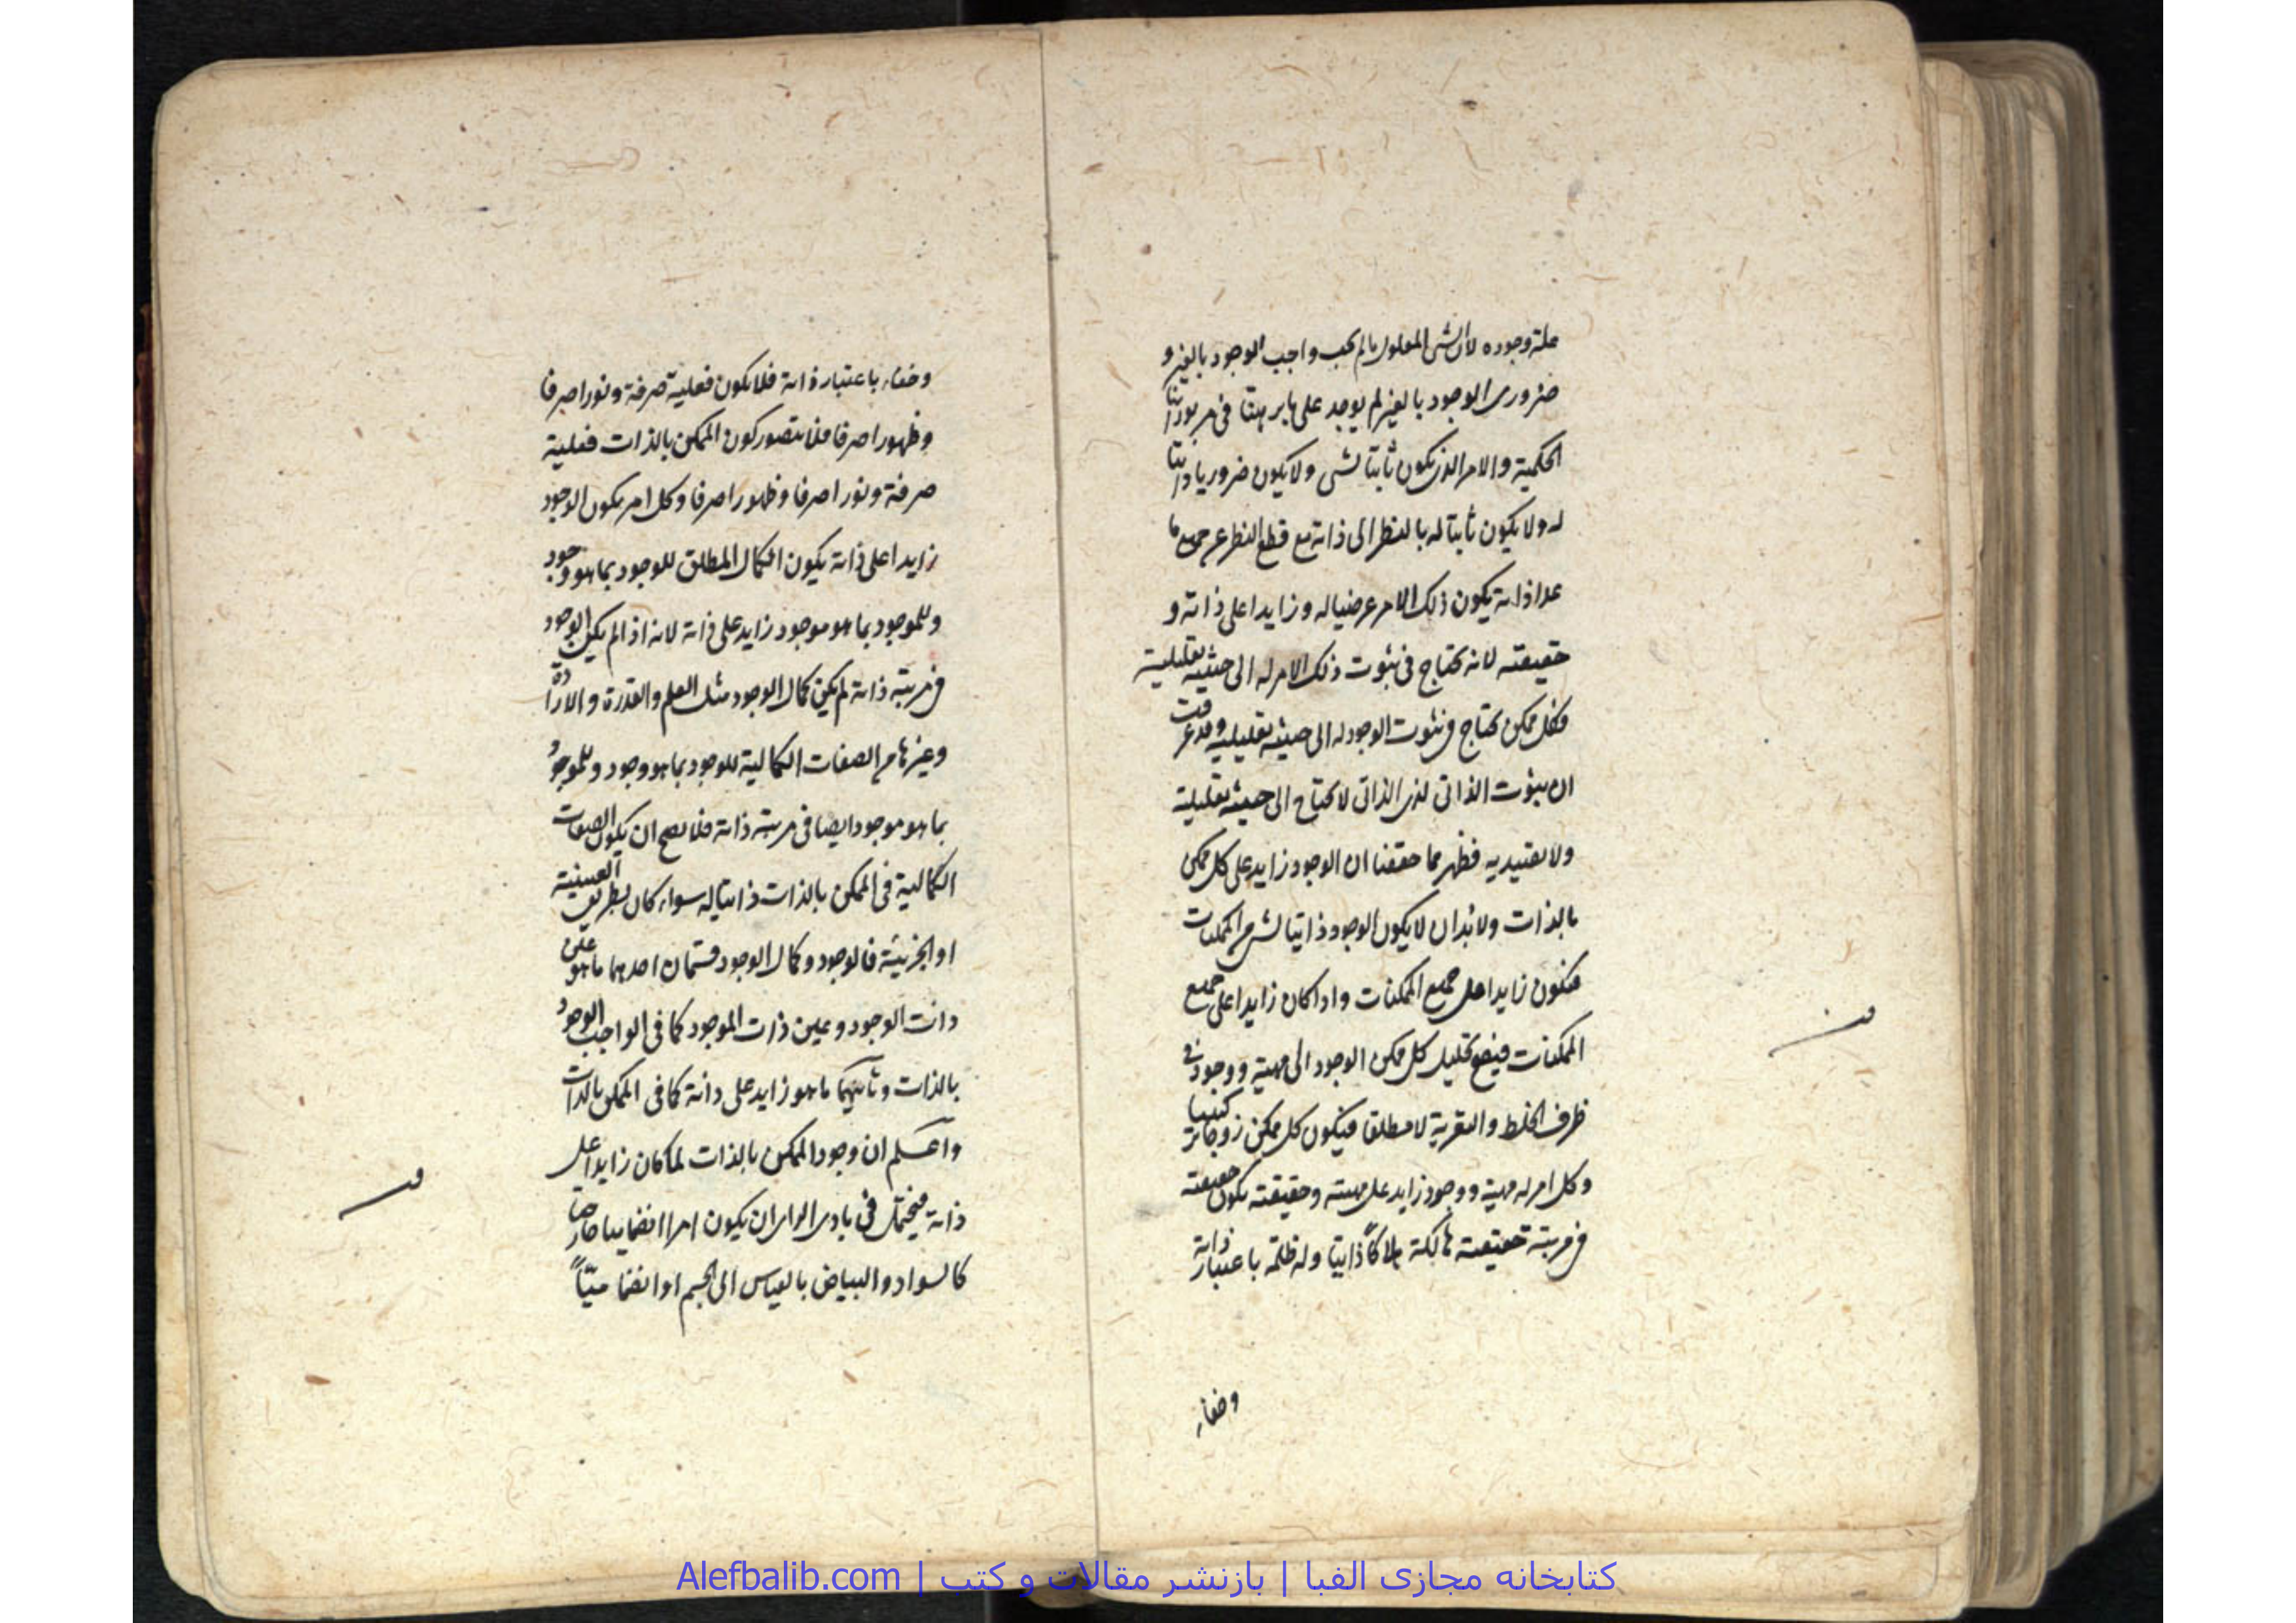 علة وجوده لان الشی المعلول ما لم یجب واجب الوجود بالغیر و
ضروری الوجود بالغیر لم یوجد علی ما برهنا فی مربوراتنا
الحکمیة والامر الذی یکون ثابتا لشی ولا یکون ضروریا ذاتیا
له ولا یکون ثابتا له بالنظر الی ذاته مع قطع النظر عن جمیع ما
عدا ذاته یکون ذلک الامر عرضیا له و زایدا علی ذاته و
حقیقته لانه یحتاج فی ثبوت ذلک الامر له الی حیثیة تعلیلیة
فکل ممکن یحتاج فی ثبوت الوجود له الی حیثیة تعلیلیة و قد عرفت
ان ثبوت الذاتی لذی الذاتی لا یحتاج الی حیثیة تعلیلیة
ولا تقییدیه فظهر مما حققنا ان الوجود زاید علی کل ممکن
بالذات ولابد ان لا یکون الوجود ذاتیا لشی من الممکنات
فیکون زایدا علی جمیع الممکنات واذا کان زایدا علی جمیع
الممکنات فیصح تحلیل کل ممکن الوجود الی مهیة ووجود فی
ظرف الخلط والتعریة لا مطلقا فیکون کل ممکن زوجا ترکیبیا
وکل امر له مهیة ووجود زاید علی مهیته وحقیقته یکون حقیقته
فی مرتبة حقیقته هالکة هلاکاً ذاتیا وله ظلمة باعتبار ذاته
وخفاء
وخفاء باعتبار ذاته فلا یکون فعلیة صرفة ونورا صرفا
وظهورا صرفا فلا یتصور کون الممکن بالذات فعلیة
صرفة ونورا صرفا وظهورا صرفا وکل امر یکون الوجود
زایدا علی ذاته یکون الکمال المطلق للوجود بما هو وجود
وللموجود بما هو موجود زاید علی ذاته لانه اذا لم یکن الوجود
فی مرتبة ذاته لم یکن کمال الوجود مثل العلم والقدرة والارادة
وغیرها من الصفات الکمالیة للوجود بما هو وجود وللموجود
بما هو موجود ایضا فی مرتبة ذاته فلا یصح ان یکون الصفات
الکمالیة فی الممکن بالذات ذاتیا له سواء کان بطریق العینیة
او الجزئیة فالوجود وکمال الوجود قسمان احدهما ما هو عین
ذات الوجود وعین ذات الموجود کما فی الواجب الوجود
بالذات وثانیهما ما هو زاید علی ذاته کما فی الممکن بالذات
واعلم ان وجود الممکن بالذات لما کان زایدا علی
ذاته فیحتمل فی بادی الرای ان یکون امرا انضمامیا خارجیا
کالسواد والبیاض بالقیاس الی الجسم او انضمامیاً
کتابخانه مجازی الفبا | بازنشر مقالات و کتب | Alefbalib.com